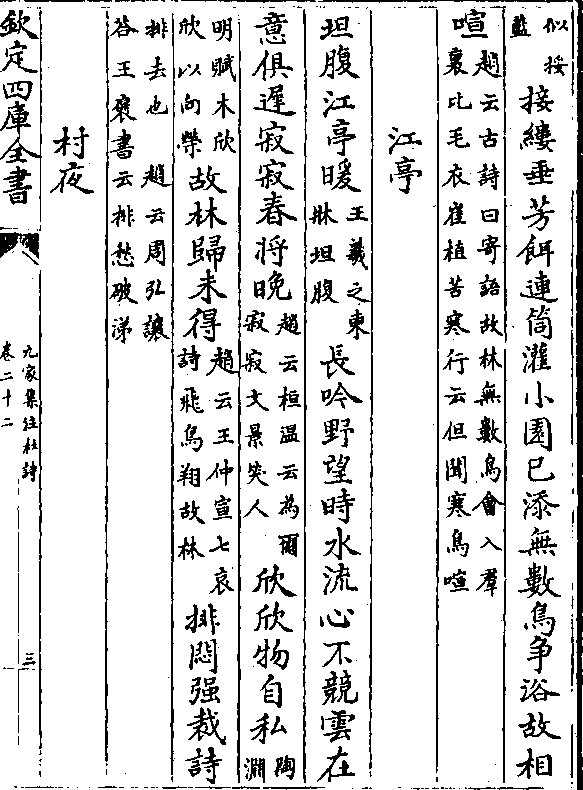 似挼藍接縷垂芳餌連筒灌小園已添無數鳥爭浴故相
喧趙云古詩曰寄語故林無數鳥會入羣裏比毛衣崔植苦寒行云但聞寒鳥喧
江亭
坦腹江亭暖王羲之東牀坦腹長吟野望時水流心不競雲在
意俱遲寂寂春將晚趙云桓温云為爾寂寂文景笑人欣欣物自私陶淵
明賦木欣欣以向榮故林歸未得趙云王仲宣七哀詩飛鳥翔故林排悶强裁詩
排去也 趙云周弘讓答王襃書云排愁破涕
村夜
欽定四庫全書
九家集注杜詩
卷二十二
三